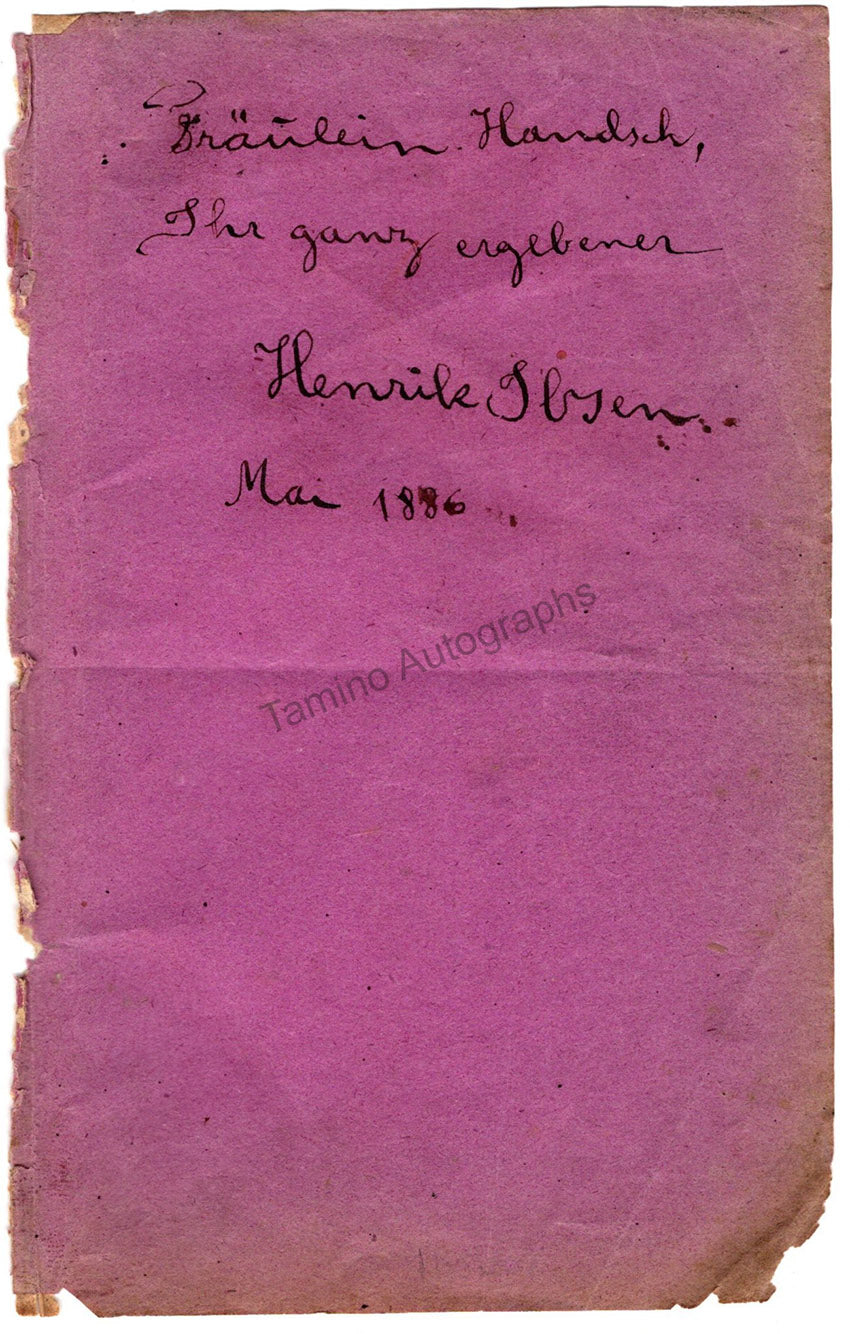 Fräulein Handsch,
Ihr ganz ergebener
Henrik Ibsen.
Mai 1886
Tamino Autographs